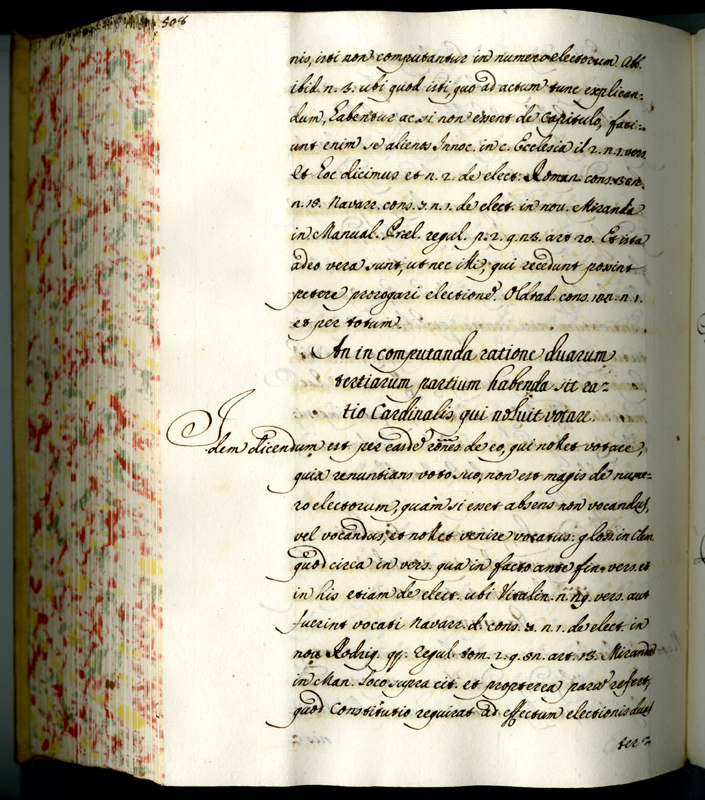 508
nis, isti non computantur in numero electorum Abb.
ibid. n. 3. ubi quod isti quo ad actum tunc explican-
dum, habentur ac si non essent de Capitulo, faci-
unt enim se alienos Innoc. in c. Ecclesia il 2. n. 1. vers.
et hoc dicimus et n. 2. de elect. Roman. cons.
n. 18. Navarr. cons. 3. n. 1. de elect. in nou. Miranda
in Manual. Præl. regul. p. 2. q. art. 20. Et ista
adeo vera sunt, ut nec illi, qui recedunt possint
petere prorogari electione. Oldrad. cons. n. 1.
et per totum.
An in computanda ratione duarum
tertiarum partium habenda sit ra-
tio Cardinalis, qui noluit votare.
Idem dicendum est per easde rones de eo, qui nollet votare,
quia renuntians voto suo, non est magis de nume-
ro electorum, quam si esset absens non vocandus,
vel vocandus, et nollet venire vocatus: gloss. in Clem
quod circa in vers. qua in facto ante fin. vers. et
in his etiam de elect. ubi Vitalin. n. vers. aut
fuerint vocati Navarr. d. cons. 3. n. 1. de elect. in
nou. Rodrig. qq. Regul. tom. 2. q. art. 13. Miranda
in Man. loco supra cit. et propterea paru refert,
quod Constitutio requirat ad effectum electionis duas
ter-